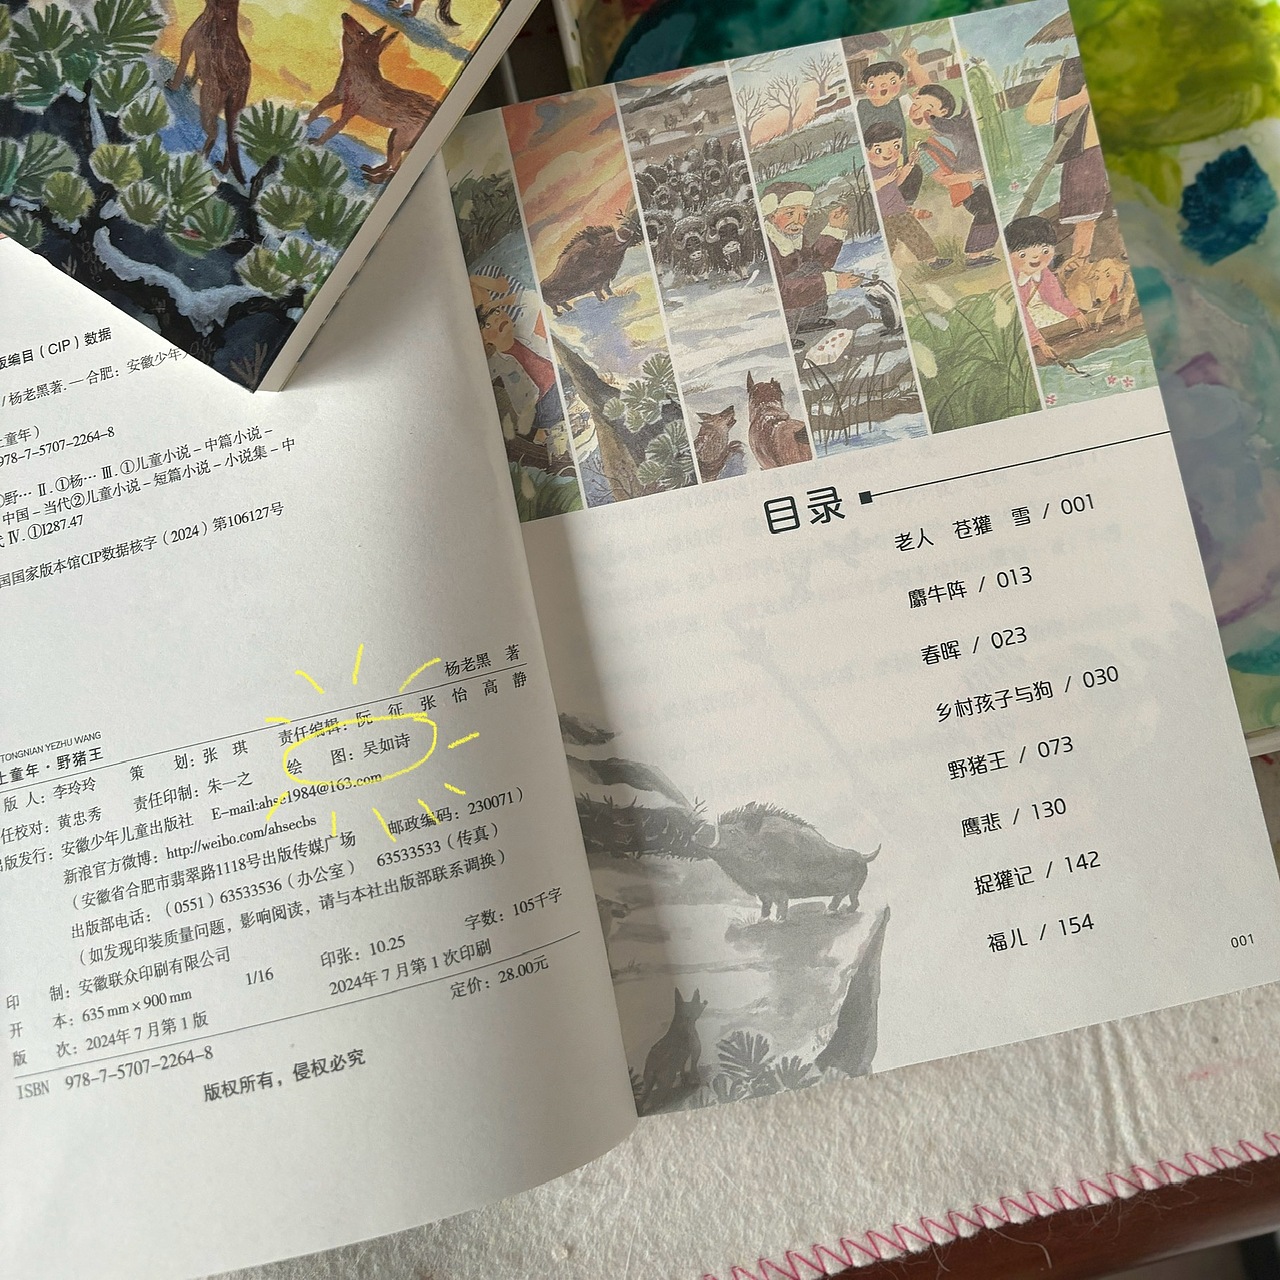 版编目（CIP）数据
/杨老黑著.—合肥：安徽少年
土童年）
978-7-5707-2264-8
①野… Ⅱ.①杨… Ⅲ.①儿童小说－中篇小说－
中国－当代②儿童小说－短篇小说－小说集－中
Ⅳ.①I287.47
国国家版本馆CIP数据核字（2024）第106127号
TONGNIAN YEZHU WANG
土童年·野猪王
杨老黑 著
版人：李玲玲 策 划：张 琪 责任编辑：阮 征 张 怡 高 静
任校对：黄忠秀 责任印制：朱一之 绘 图：吴如诗
出版发行：安徽少年儿童出版社 E-mail:ahse1984@163.com
新浪官方微博：http://weibo.com/ahsecbs
（安徽省合肥市翡翠路1118号出版传媒广场 邮政编码：230071）
出版部电话：（0551）63533536（办公室） 63533533（传真）
（如发现印装质量问题，影响阅读，请与本社出版部联系调换）
印 制：安徽联众印刷有限公司
开 本：635 mm × 900 mm 1/16 印张：10.25 字数：105千字
版 次：2024年 7 月第 1 版 2024年 7 月第 1 次印刷
ISBN 978-7-5707-2264-8 定价：28.00元
版权所有，侵权必究
目录
老人 苍獾 雪 / 001
麝牛阵 / 013
春晖 / 023
乡村孩子与狗 / 030
野猪王 / 073
鹰悲 / 130
捉獾记 / 142
福儿 / 154
001